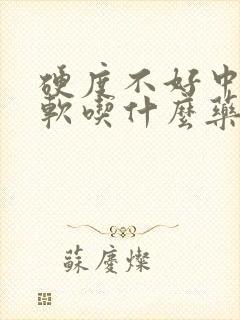 硬度不好中
軟喫什麼藥
蘇慶燦